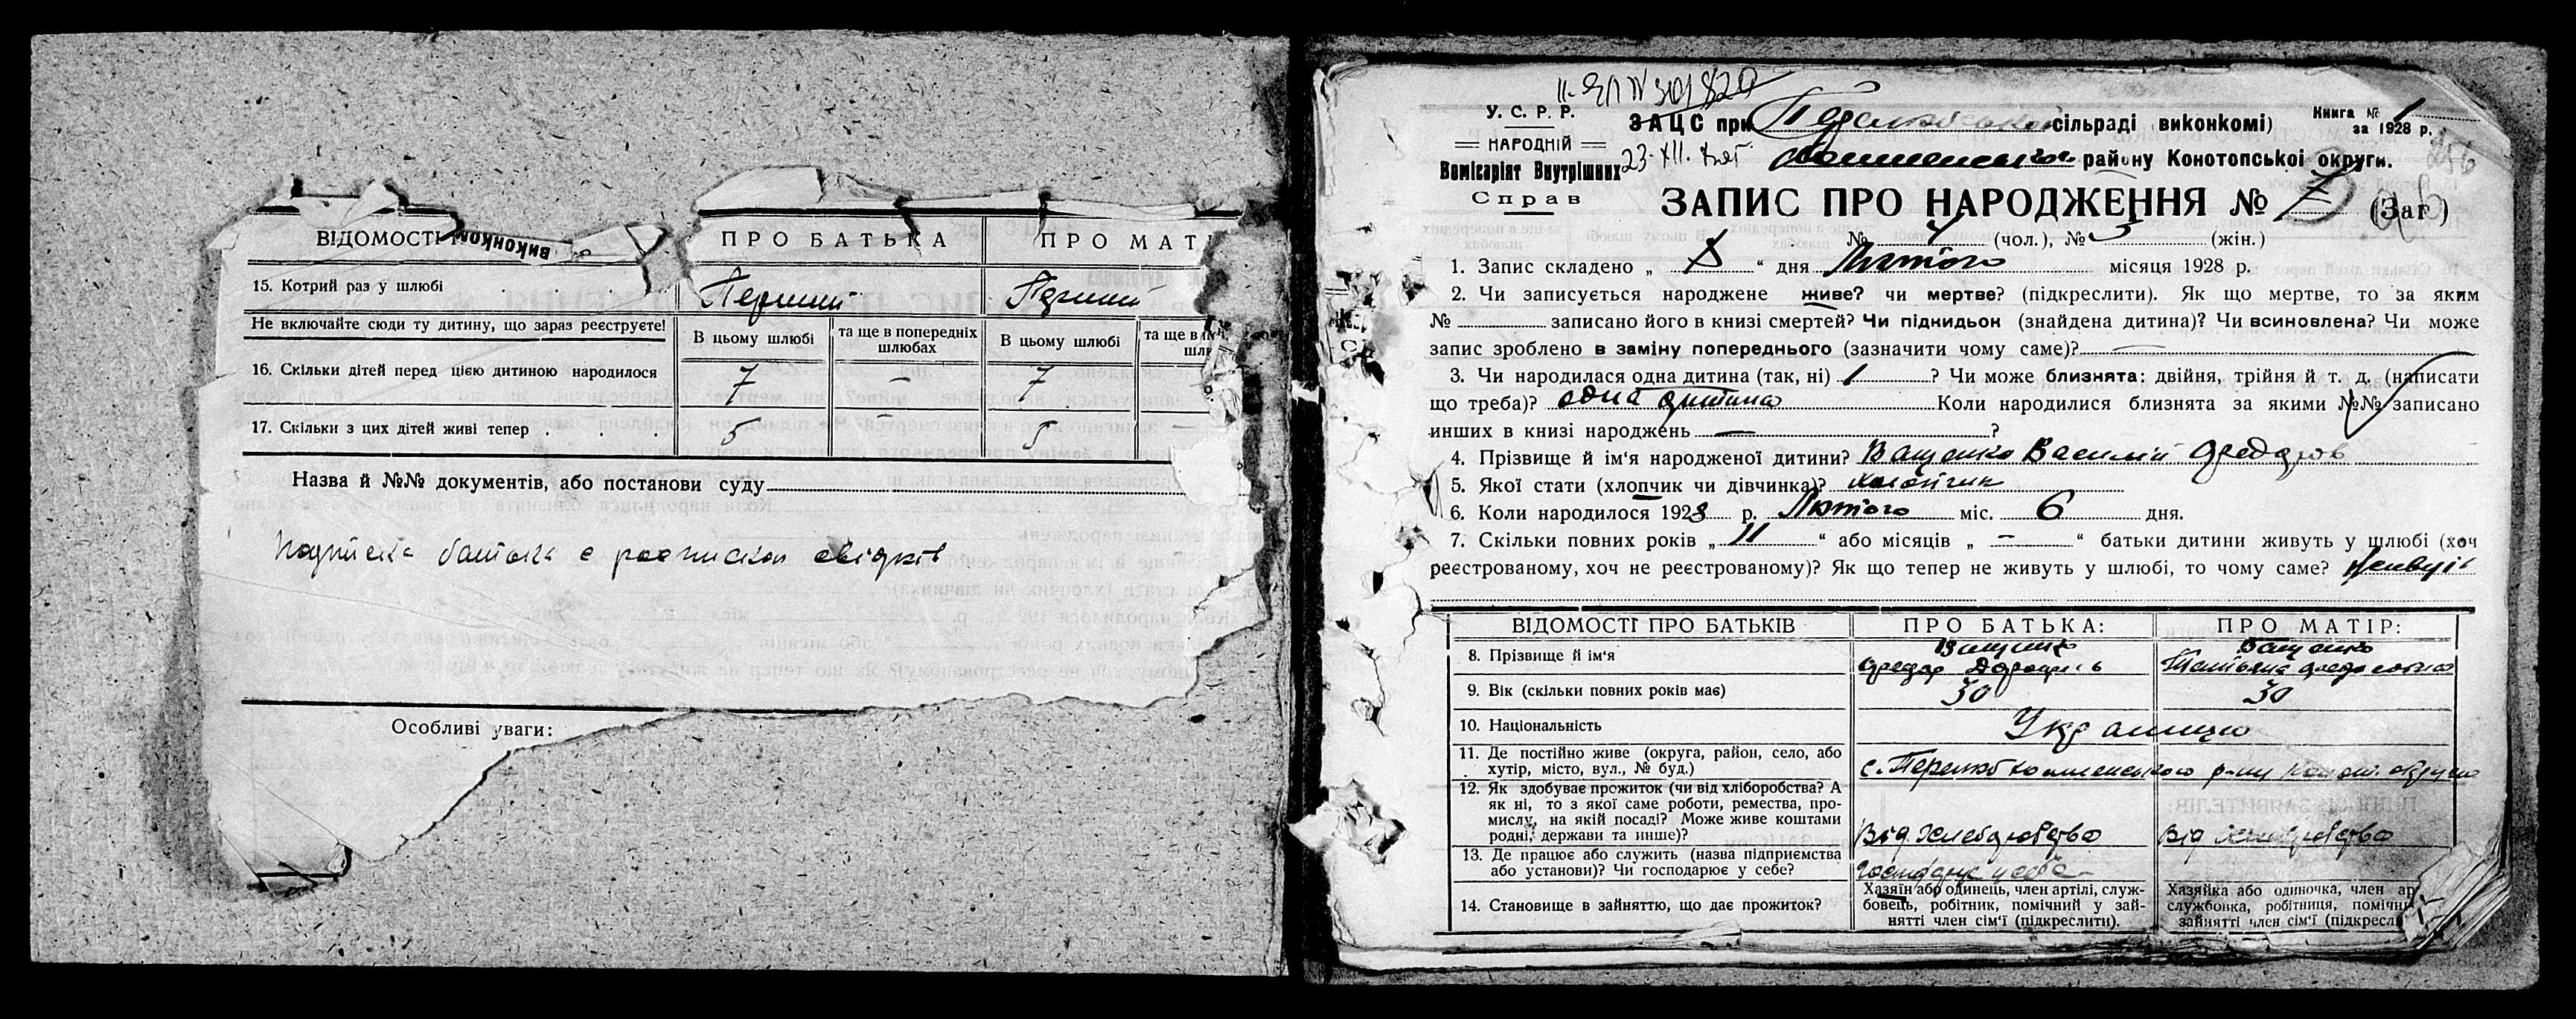 ВІДОМОСТІ
виконком
ПРО БАТЬКА
ПРО МАТІ
15. Котрий раз у шлюбі
Перший
Перший
Не включайте сюди ту дитину, що зараз реєструєте!
В цьому шлюбі
та ще в попередніх шлюбах
В цьому шлюбі
та ще в
16. Скільки дітей перед цією дитиною народилося
7 — 7
17. Скільки з цих дітей живі тепер
5 — 5 —
Назва й №№ документів, або постанови суду
Подписка батька є роспиской свідків
Особливі уваги:
У. С. Р. Р.
НАРОДНІЙ
Комісаріят Внутрішних
Справ
23. XII.
ЗАЦС при сільраді виконкомі)
району Конотопської округи.
Книга № 1
за 1928 р.
ЗАПИС ПРО НАРОДЖЕННЯ № 7 (Заг)
№ 4 (чол.), № 3 (жін.)
1. Запис складено „ 8 “ дня Лютого місяця 1928 р.
2. Чи записується народжене живе? чи мертве? (підкреслити). Як що мертве, то за яким
№ записано його в книзі смертей? Чи підкидьок (знайдена дитина)? Чи всиновлена? Чи може
запис зроблено в заміну попереднього (зазначити чому саме)? —
3. Чи народилася одна дитина (так, ні) 1 ? Чи може близнята: двійня, трійня й т. д. (написати
що треба)? одна дитина Коли народилися близнята за якими №№ записано
инших в книзі народжень — ?
4. Прізвище й ім'я народженої дитини? Ващенко Василий Федоров
5. Якої стати (хлопчик чи дівчинка)? хлопчик
6. Коли народилося 1928 р. Лютого міс. 6 дня.
7. Скільки повних років „ 11 “ або місяців „ — “ батьки дитини живуть у шлюбі (хоч
реєстрованому, хоч не реєстрованому)? Як що тепер не живуть у шлюбі, то чому саме? живуть
ВІДОМОСТІ ПРО БАТЬКІВ
ПРО БАТЬКА:
ПРО МАТІР:
8. Прізвище й ім'я
Ващенко
Федор
Ващенко
Татьяна Федосовна
9. Вік (скільки повних років має)
30
30
10. Національність
Українці
11. Де постійно живе (округа, район, село, або
хутір, місто, вул., № буд.)
с. Перелюб р-ну Конот. округи
12. Як здобуває прожиток (чи від хліборобства? А
як ні, то з якої саме роботи, ремества, про-
мислу, на якій посаді? Може живе коштами
родні, держави та инше)?
Від Хлеборобства
Від Хлеборобства
13. Де працює або служить (назва підприємства
або установи)? Чи господарює у себе?
Господарює у себе
14. Становище в зайняттю, що дає прожиток?
Хазяїн або одинець, член артілі, служ-
бовець, робітник, помічний у зай-
нятті член сім'ї (підкреслити).
Хазяйка або одиночка, член ар
службовка, робітниця, помічн
зайнятті член сім'ї (підкресл